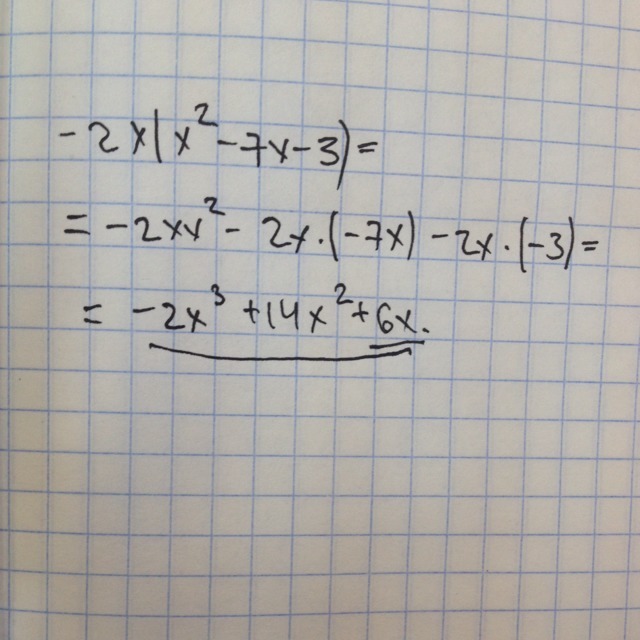 -2x(x²-7x-3)=
= -2xx² - 2x·(-7x) - 2x·(-3)=
= -2x³ +14x² + 6x.